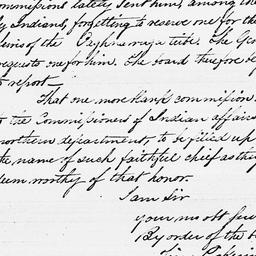 commissions lately sent him, among the
by Indians, forgetting to reserve one for the
of the tribe. The
requests one for him. The board therefore be
to report—
That one more blank commission
to the Commissioners of Indian affairs
northern department, to be filled up
the name of such faithful chief as they
deem worthy of that honor.
I am Sir
your mo obt ser
By order of the b